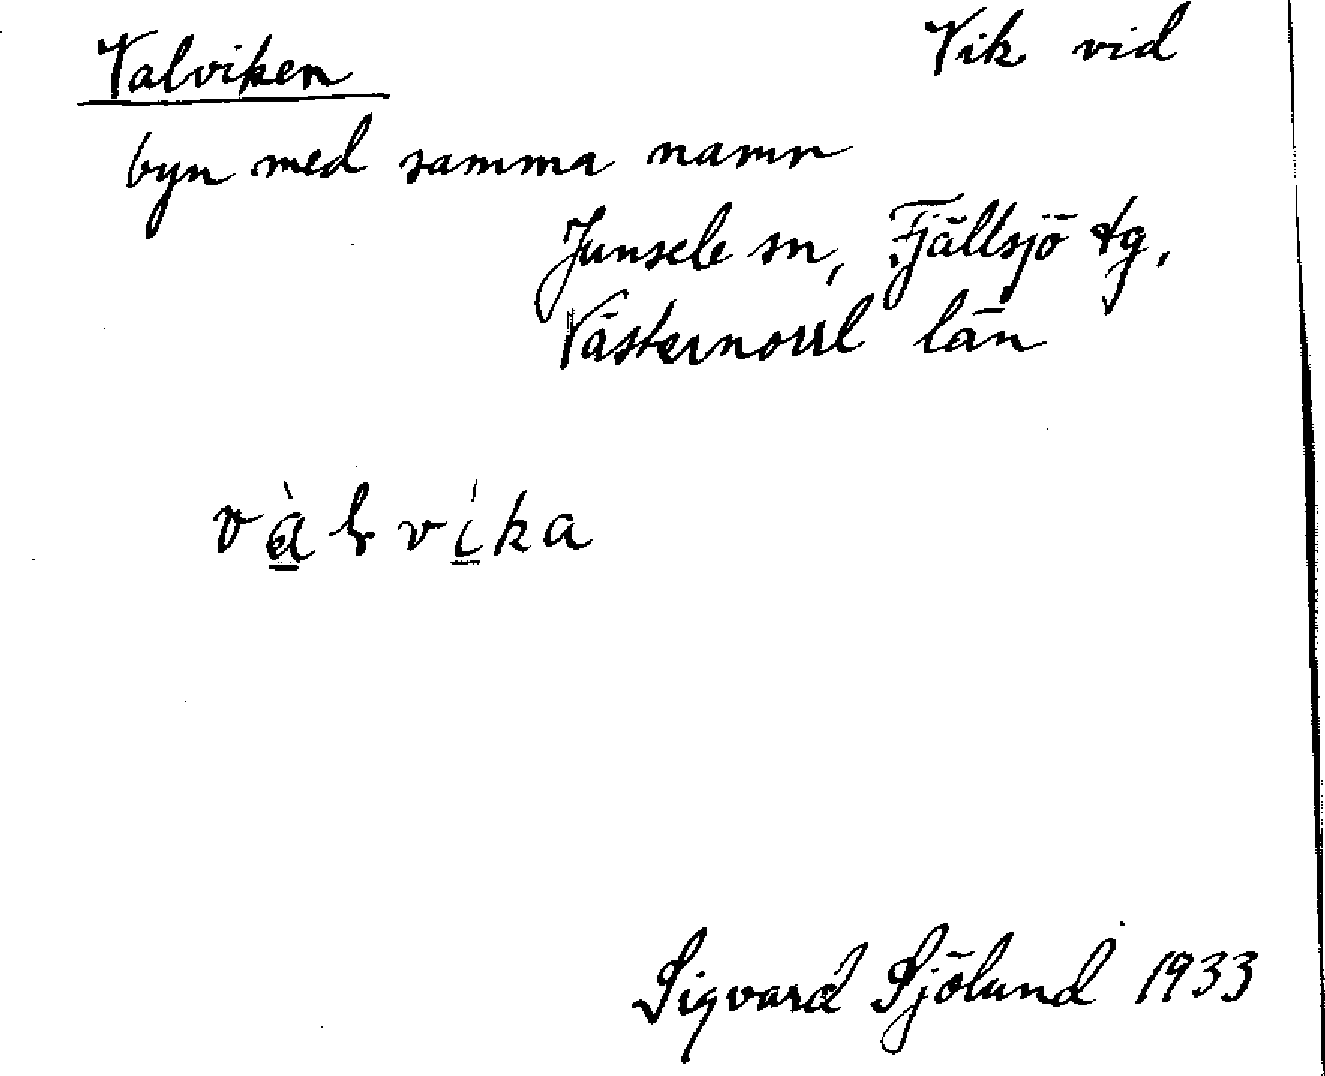 Valviken Vik vid
byn med samma namn
Junsele sn, Fjällsjö tg,
Västernorrl län
và̱lví̱ka
Sigvard Sjölund 1933